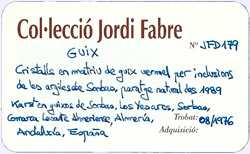 Col·lecció Jordi Fabre
Nº JFD179
GUIX
Cristalls en matriu de guix vermell per inclusions
de les argiles de Sorbas, paratge natural des 1989
Karst en guixos de Sorbas, Los Yesares, Sorbas,
Comarca Levante Almeriense, Almería,
Andalucía, España
Trobat: 08/1976
Adquisició: